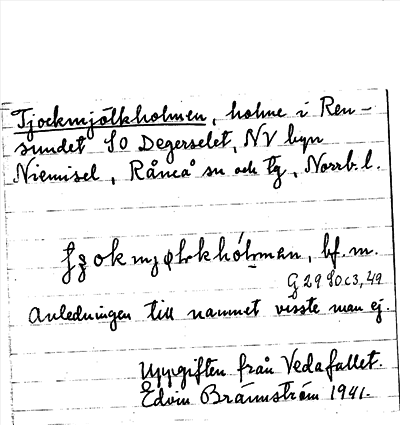 Tjockmjölkholmen, holme i Ren-
sundet SO Degerselet, NV byn
Niemisel, Råneå sn och tg, Norrb. l.
bf. m.
G 29 SO c3, 49
Anledningen till namnet visste man ej.
Uppgiften från Vedafallet.
Edvin Brännström 1941.